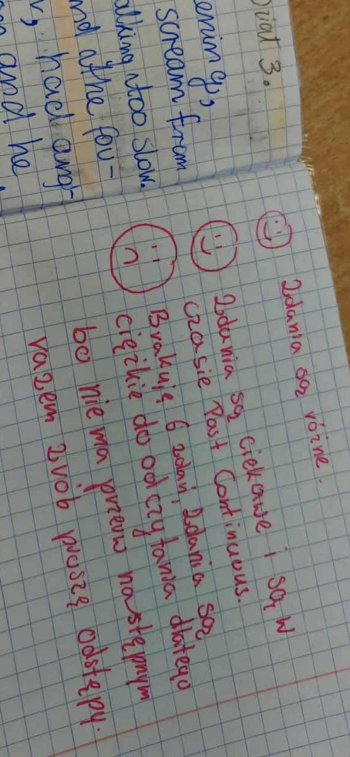 Zdania są różne.
Zdania są ciekawe i są w
czasie Past Continuous.
Brakuje 6 zdań, Zdania są
ciężkie do odczytania dlatego
bo nie ma przerw następnym
razem zrób proszę odstępy.
3.
scream from
alking too slow.
nd the four-
had ang-
and he